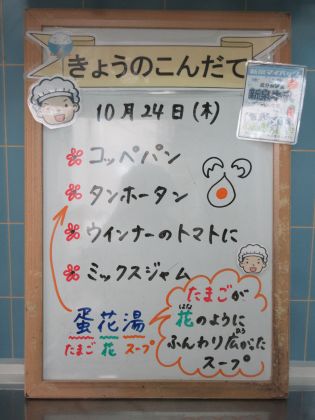 きょうのこんだて
10月24日(木)
コッペパン
タンホータン
ウインナーのトマトに
ミックスジャム
蛋花湯
たまご 花 スープ
たまごが
花のように
はな
ふんわり広がった
ひろ
スープ